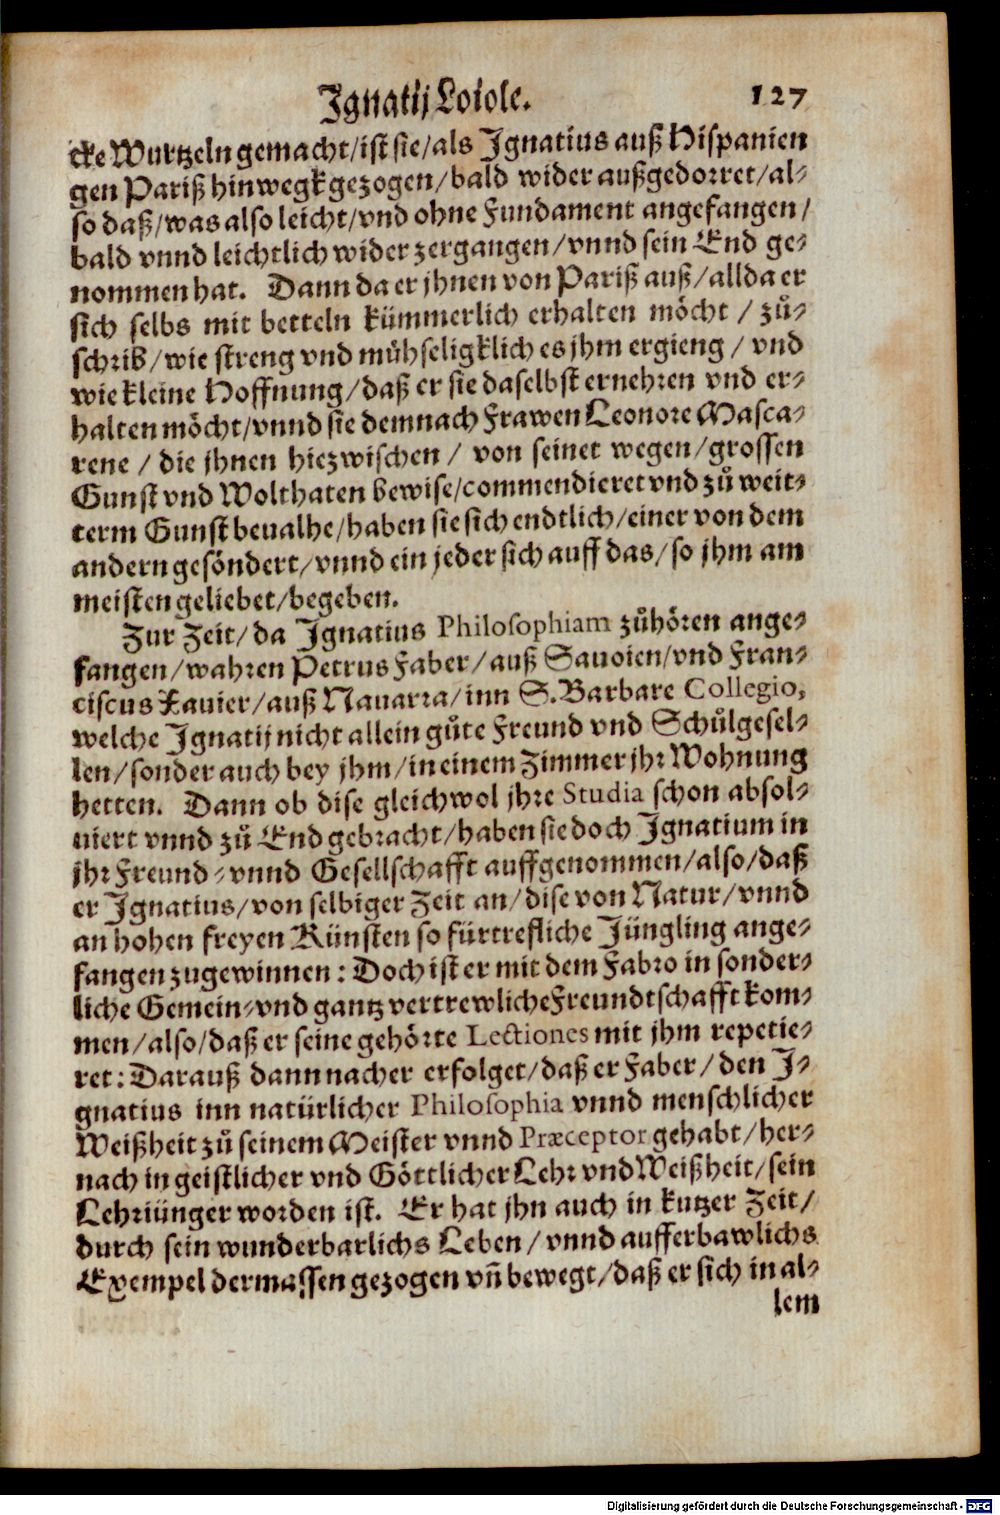 Ignatij Loiole. 127
cke Wurtzeln gemacht/ist sie/als Ignatius auß Hispanien
gen Pariß hinwegkgezogen/bald wider außgedorret/al-
so daß/was also leicht/vnd ohne Fundament angefangen/
bald vnnd leichtlich wider zergangen/vnnd sein End ge-
nommen hat. Dann da er jhnen von Pariß auß/allda er
sich selbs mit betteln kümmerlich erhalten möcht/zů-
schrib/wie streng vnd mühseligklich es jhm ergieng/vnd
wie kleine Hoffnung/daß er sie daselbst ernehren vnd er-
halten möcht/vnnd sie demnach Frawen Leonore Masca-
rene/die jhnen hiezwischen/von seinet wegen/grossen
Gunst vnd Wolthaten bewise/commendieret vnd zů weit-
term Gunst beualhe/haben sie sich endtlich/einer von dem
andern gesöndert/vnnd ein jeder sich auff das/so jhm am
meisten geliebet/begeben.
Zur Zeit/da Ignatius Philosophiam zůhören ange-
fangen/wahren Petrus Faber/auß Sauoien/vnd Fran-
ciscus Xauier/auß Nauarra/inn S. Barbare Collegio,
welche Ignatij nicht allein gůte Freund vnd Schůlgesel-
len/sonder auch bey jhm/in einem Zimmer jhr Wohnung
hetten. Dann ob dise gleichwol jhre Studia schon absol-
uiert vnnd zů End gebracht/haben sie doch Ignatium in
jhr Freund-vnnd Gesellschafft auffgenommen/also/daß
er Ignatius/von selbiger Zeit an/dise von Natur/vnnd
an hohen freyen Künsten so fürtrefliche Jüngling ange-
fangen zugewinnen: Doch ist er mit dem Fabro in sonder-
liche Gemein-vnd gantz vertrewliche Freundtschafft kom-
men/also/daß er seine gehörte Lectiones mit jhm repetie-
ret: Darauß dann nacher erfolget/daß er Faber/den I-
gnatius inn natürlicher Philosophia vnnd menschlicher
Weißheit zů seinem Meister vnnd Præceptor gehabt/her-
nach in geistlicher vnd Göttlicher Lehr vnd Weißheit/sein
Lehriünger worden ist. Er hat jhn auch in kutzer Zeit/
durch sein wunderbarlichs Leben/vnnd aufferbawlichs
Exempel dermassen gezogen vñ bewegt/daß er sich in al-
lem
Digitalisierung gefördert durch die Deutsche Forschungsgemeinschaft - DFG